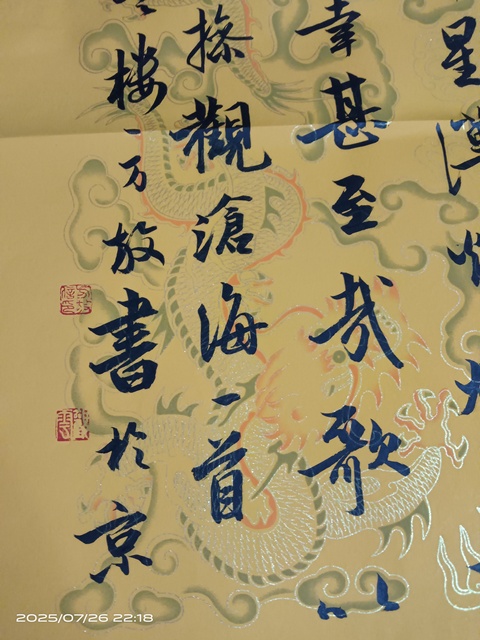 星漢
幸甚至哉歌以
操觀滄海一首
樓方放書於京
2025/07/26 22:18